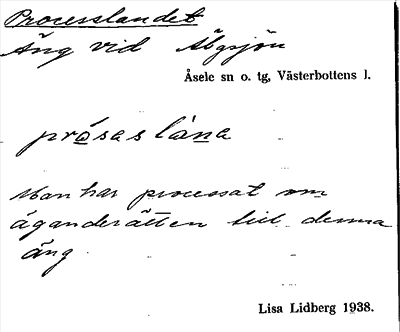 Processlandet
Äng vid Älgsjön
Åsele sn o. tg, Västerbottens l.
prósaslàna
Man har processat om
äganderätten till denna
äng.
Lisa Lidberg 1938.